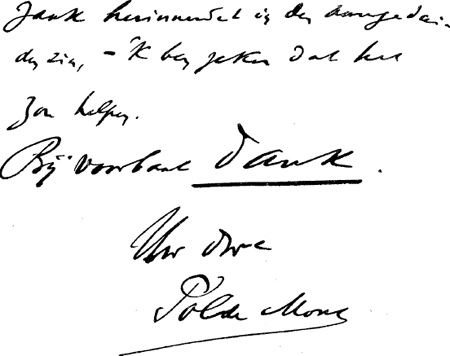 herinnerdet in den aangedui-
den zin, – 'k ben zeker dat het
zou helpen.
Bij voorbaat dank.
Uw dwe
Pol de Mont